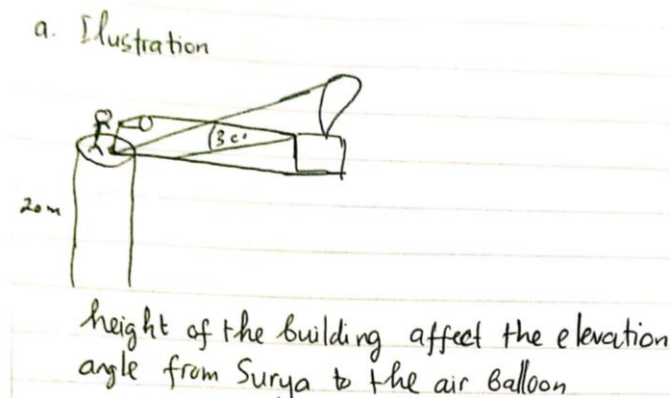 a. Ilustration
30°
20m
height of the building affect the elevation
angle from Surya to the air Balloon